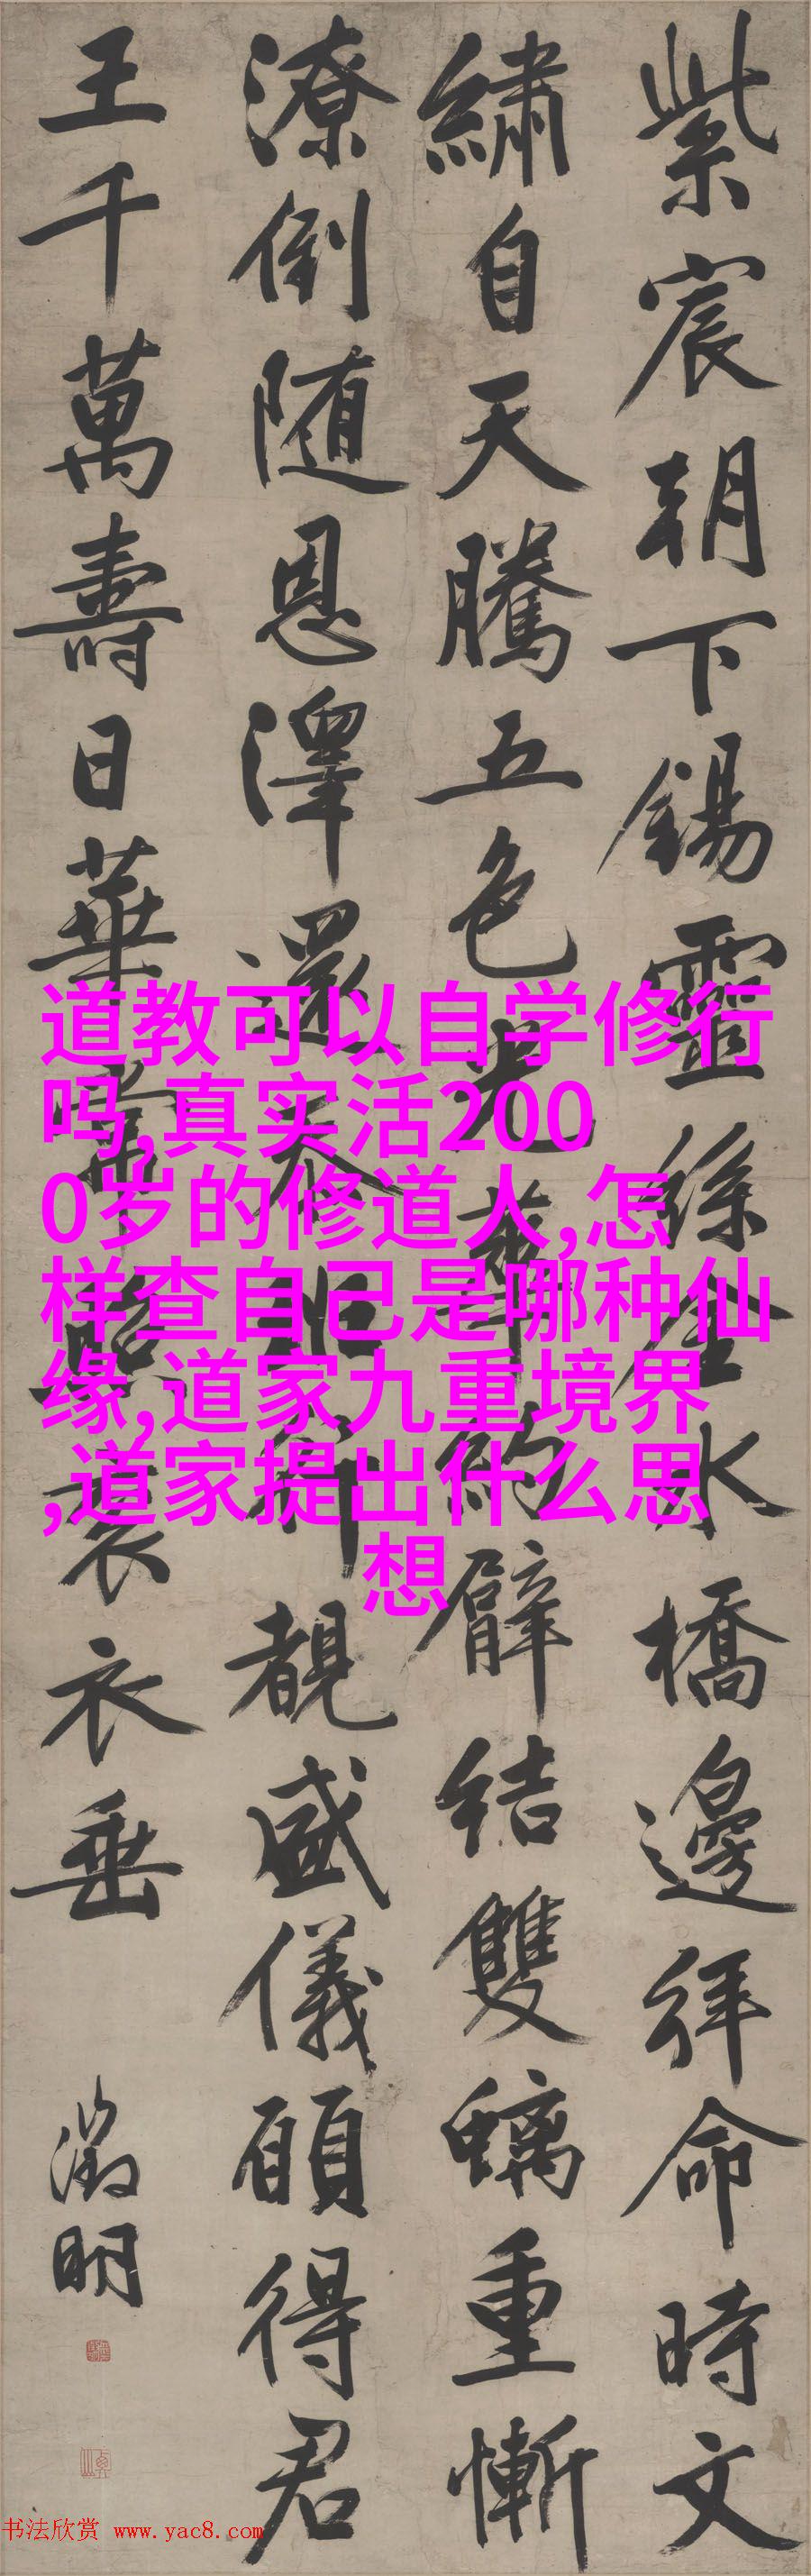 紫宸朝下錫靈絲金水橋邊拜命時文
繡自天騰五色光華約臂結雙螭重慚
潦倒随恩澤還忝班行覩盛儀願得君
王千萬壽日華常照袞衣垂
徵明
道教可以自学修行
吗,真实活200
0岁的修道人,怎
样查自己是哪种仙
缘,道家九重境界
,道家提出什么思
想
书法欣赏 www.yac8.com